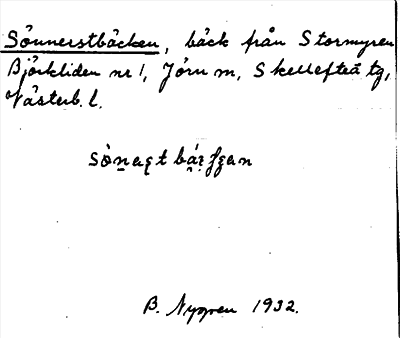 Sönnerstbäcken, bäck från Stormyren
Björkliden nr 1, Jörn m, Skellefteå tg,
Västerb. l.
B. Nygren 1932.